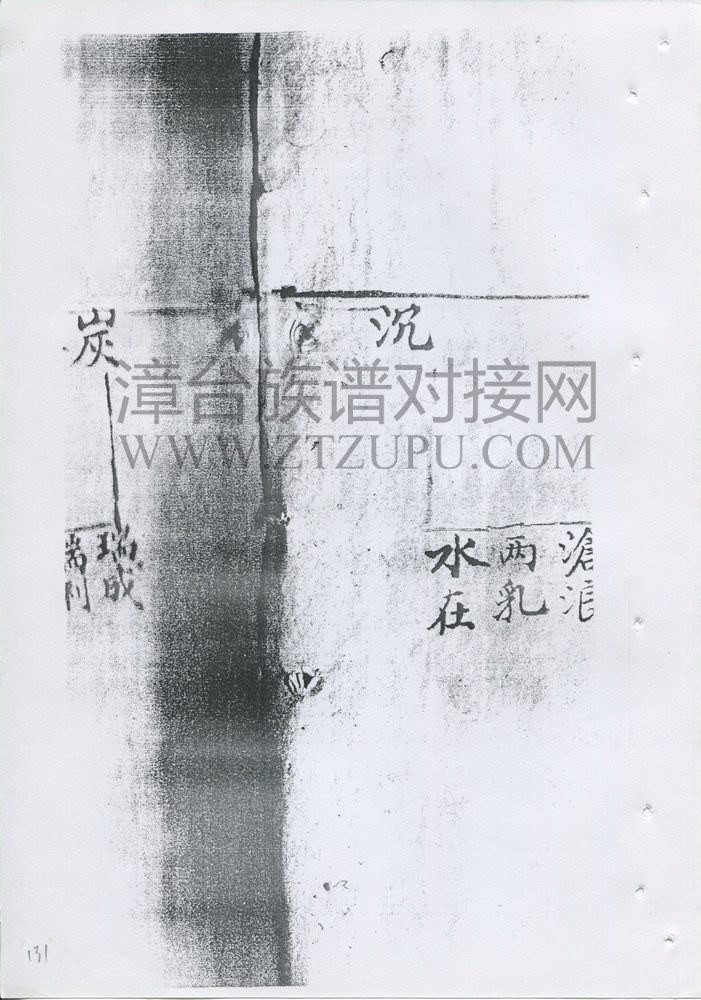 沉
滄浪
两乳
水在
炭
瑞成
瑞利
漳台族谱对接网
WWW.ZTZUPU.COM
131